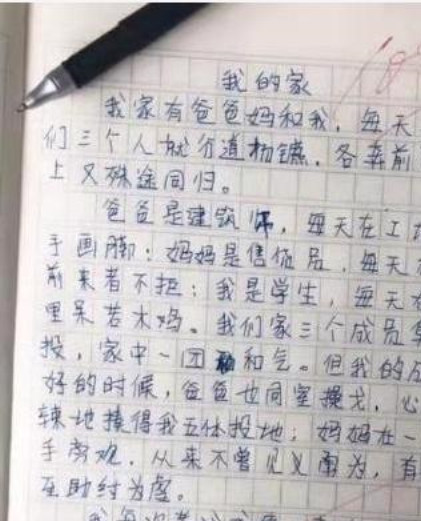 我的家
我家有爸爸妈和我，每天
们三个人就分道扬镳，各奔前
上又殊途同归。
爸爸是建筑师，每天在工
手画脚；妈妈是售货员，每天
前来者不拒；我是学生，每天
里呆若木鸡。我们家三个成员
投，家中一团和气。但我的成
好的时候，爸爸也同室操戈，心
辣地揍得我五体投地；妈妈在一
手旁观，从来不曾见义勇为，有
至助纣为虐。